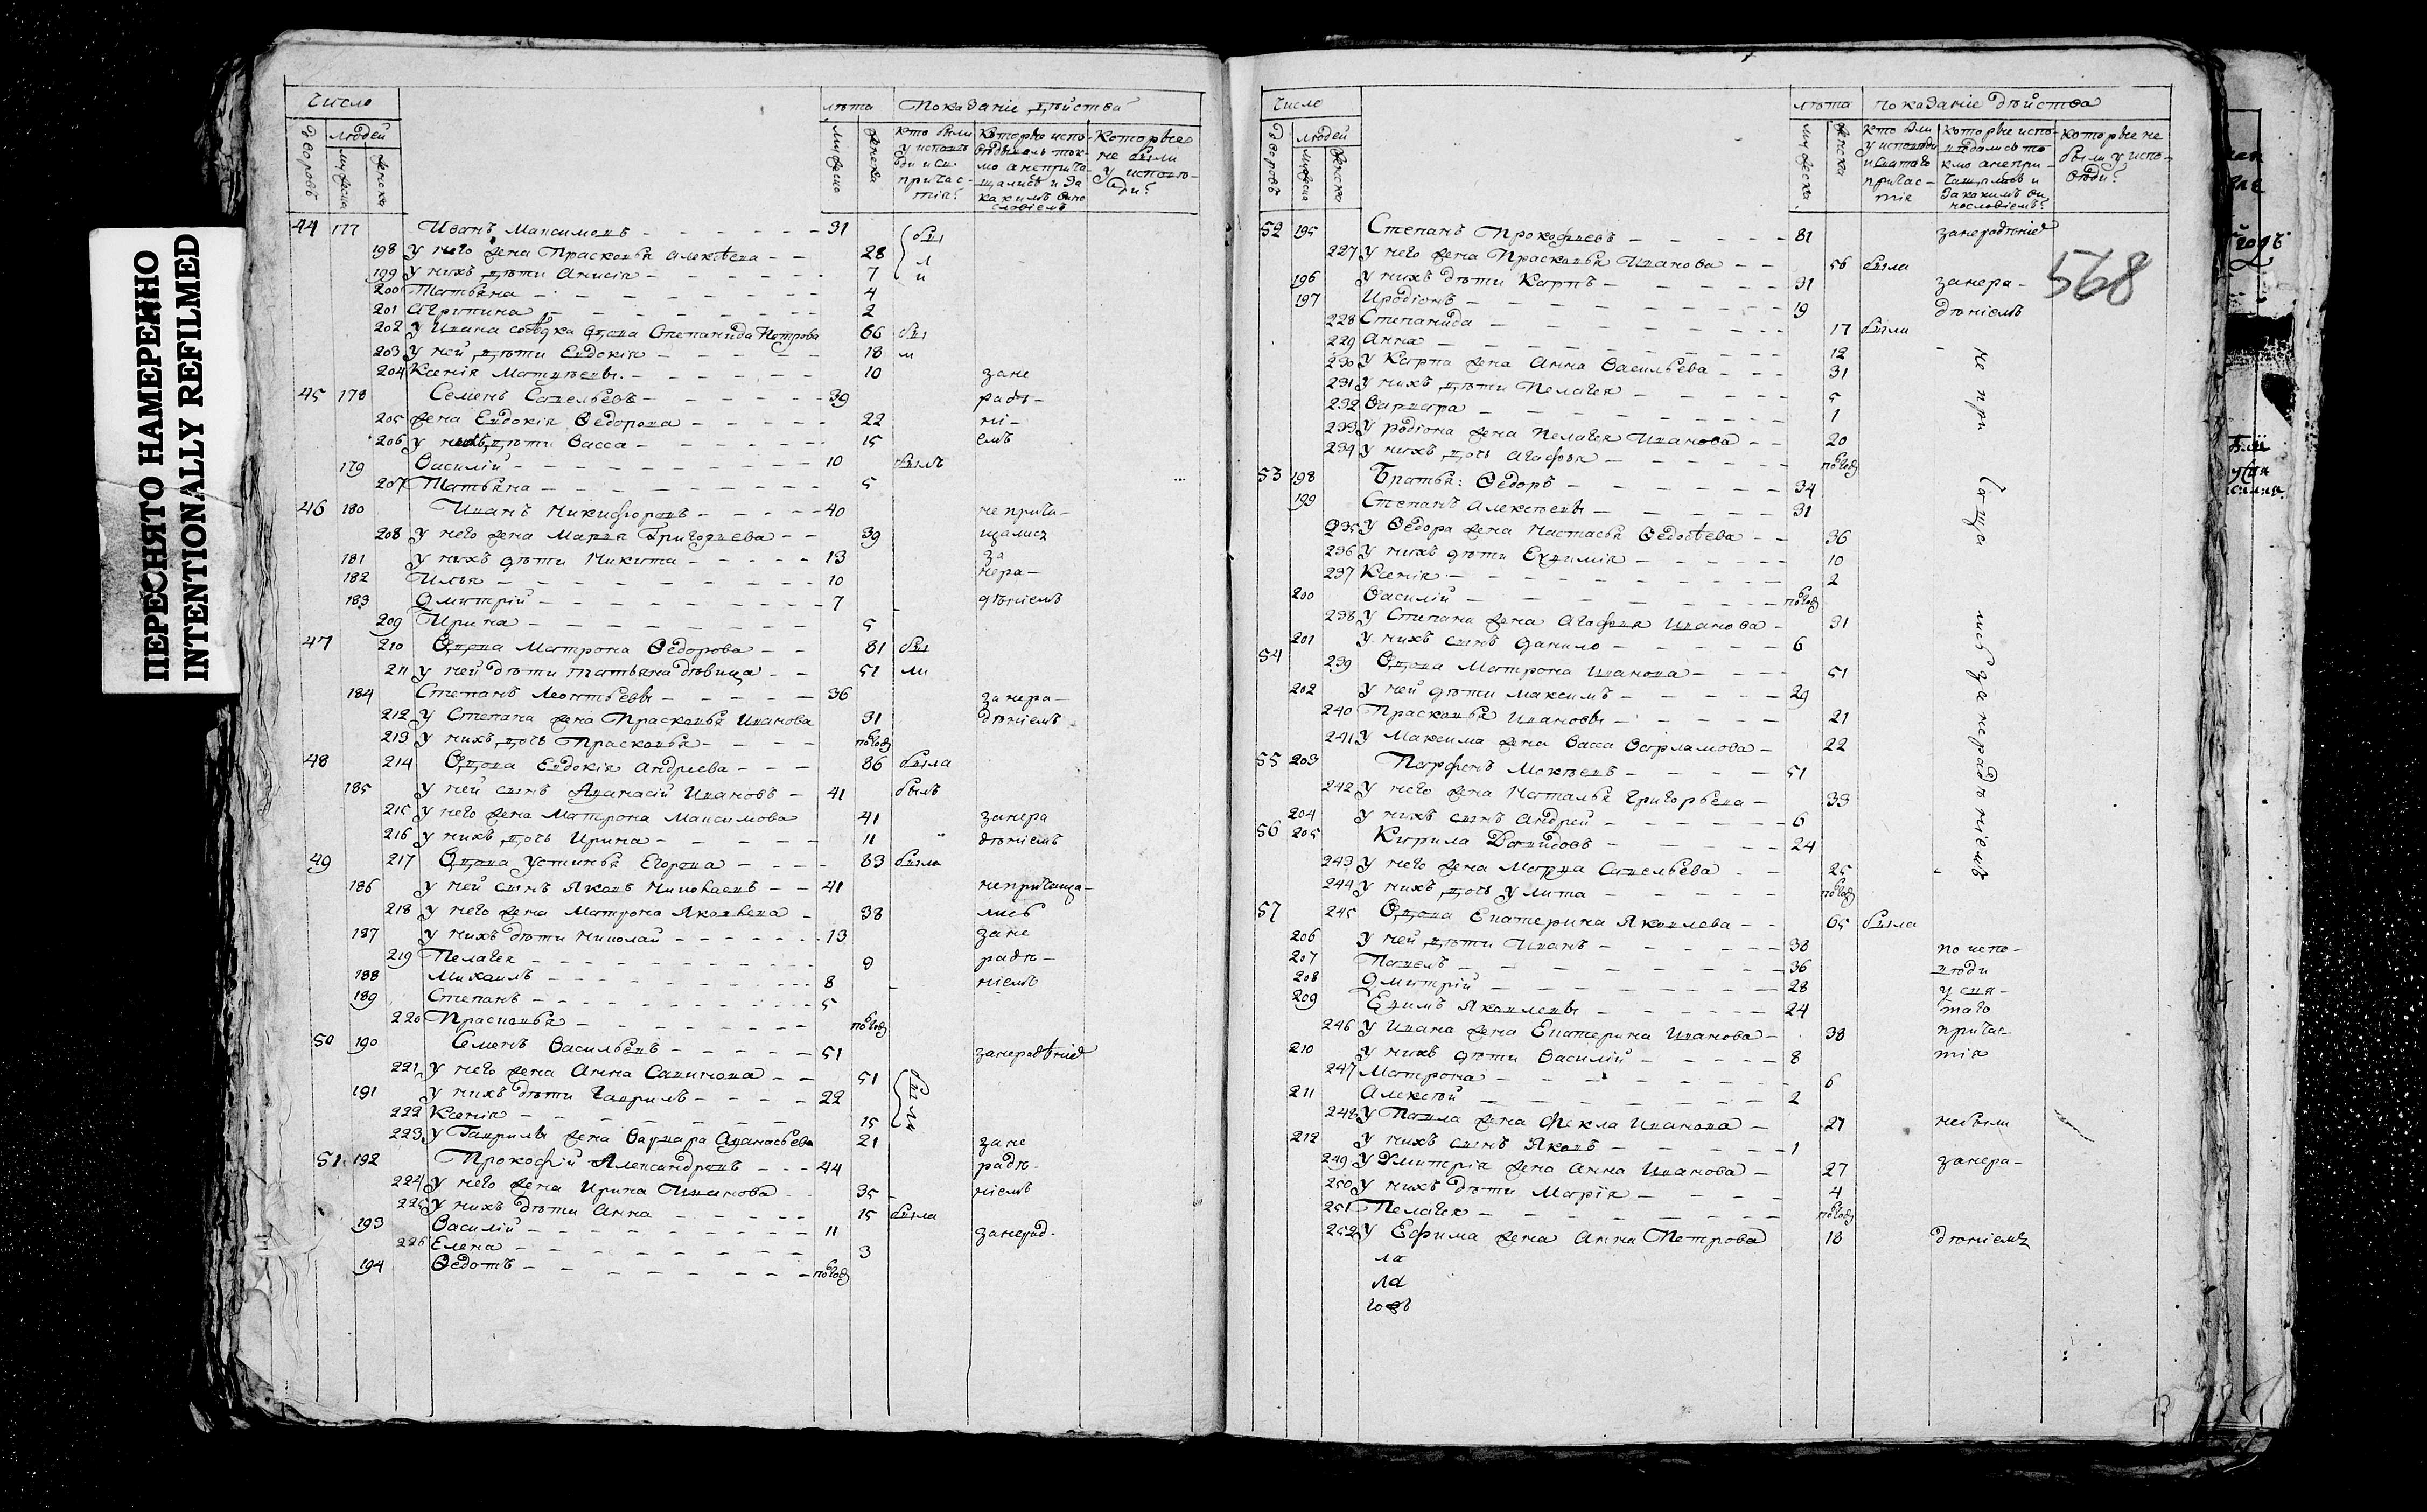 ПЕРЕСНЯТО НАМЕРЕННО
INTENTIONALLY REFILMED
Число
лѣта Показаніе дѣйства
дворовъ людей
мужеска женска
мужеска женска
кто были у исповѣди и св. причастія?
Которые исповѣдывались токмо а непричащались и за какимъ винословіемъ
Которые не были у исповѣди?
44 177 Иванъ Максимовъ 31 был
198 у него жена Прасковья Алексѣева 28 л
199 у нихъ дѣти Анисія 7 и
200 Татьяна 4
201 Агрипина 2
202 у Ивана сосѣдка вдова Степанида Петрова 66 бы
203 у ней дѣти Евдокія 18 ли
204 Ксенія Матвѣевы 10 зане
45 178 Семенъ Савельевъ 39 радѣ-
205 жена Евдокія Ѳедорова 22 ні-
206 у нихъ дѣти Васса 15 емъ
179 Василій 10 былъ
207 Татьяна 5
46 180 Иванъ Никифоровъ 40 не прича-
208 у него жена Марья Григорьева 39 щались
181 у нихъ дѣти Никита 13 за
182 Илья 10 нера-
183 Дмитрій 7 дѣніемъ
209 Ирина 5
47 210 Вдова Матрона Ѳедорова 81 бы
211 у ней дѣти татьяна дѣвица 51 ли
184 Степанъ Леонтьевы 36 за нера-
212 у Степана жена Прасковья Иванова 31 дѣніемъ
213 у нихъ дочь Прасковья полгод
48 214 Вдова Евдокія Андреева 86 была
185 у ней сынъ Аѳанасій Ивановъ 41 былъ
215 у него жена Матрона Максимова 41 за нера
216 у нихъ дочь Ирина 11 дѣніемъ
49 217 Вдова Устинья Егорова 83 была
186 у ней сынъ Яковъ Николаевъ 41 непричаща-
218 у него жена Матрона Яковлева 38 лись
187 у нихъ дѣти Николай 13 зане
219 Пелагея 9 радѣ-
188 Михаилъ 8 ніемъ
189 Степанъ 5
220 Прасковья полгод
50 190 Семенъ Васильевъ 51 занерадѣніе
221 у него жена Анна Савинова 51 были
191 у нихъ дѣти Гаврилъ 22
222 Ксенія 15
223 у Гаврилы жена Варвара Аѳанасьева 21 зане
51 192 Прокофій Александровъ 44 радѣ-
224 у него жена Ирина Иванова 35 ніемъ
225 у нихъ дѣти Анна 15 была
193 Василій 11 занерад-
226 Елена 3
194 Ѳедотъ полгод
Число
лѣта показаніе дѣйства
дворовъ людей
мужеска женска
мужеска женска
кто были у исповѣди и святаго причастія
которые исповѣдались токмо а непричащались и за какимъ винословіемъ?
которые не были у исповѣди?
568
52 195 Степанъ Прокофьевъ 81 занерадѣніе
227 у него жена Прасковья Иванова 56 была
196 у нихъ дѣти Карпъ 31 занера-
197 Иродіонъ 19 дѣніемъ
228 Степанида 17 были
229 Анна 12
230 у Карпа жена Анна Васильева 31
231 у нихъ дѣти Пелагея 5
232 Варвара 1
233 у родіона жена Пелагея Иванова 20
234 у нихъ дочь Агафья полгод
53 198 Братья: Ѳедоръ 34
199 Степанъ Алексѣевы 31
235 у Ѳедора жена Настасья Ѳедосѣева 36
236 у нихъ дѣти Евфимія 10
237 Ксенія 2
200 Василій полгод
238 у Степана жена Агафья Иванова 31
201 у нихъ сынъ Данило 6
54 239 Вдова Матрона Иванова 51
202 у ней дѣти Максимъ 29
240 Прасковья Ивановы 21
241 у Максима жена Васса Варламова 22
55 203 Парфенъ Мокѣевъ 51
242 у него жена Наталья Григорьева 38
204 у нихъ сынъ Андрей 6
56 205 Кирила Давидовъ 24
243 у него жена Марья Савельева 25
244 у нихъ дочь Улита полгод
не причащались за нерадѣніемъ
57 245 Вдова Екатерина Яковлева 65 была
206 у ней дѣти Иванъ 38 по испо-
207 Павелъ 36 вѣди
208 Дмитрій 28 у свя-
209 Ефимъ Яковлевы 24 таго
246 у Ивана жена Екатерина Иванова 38 причас-
210 у нихъ дѣти Василій 8 тія
247 Матрона 6
211 Алексѣй 2
248 у Павла жена Фекла Иванова 27 небыли
212 у нихъ сынъ Яковъ 1
249 у Дмитрія жена Анна Иванова 27 занера-
250 у нихъ дѣти Марія 4
251 Пелагея полгод
252 у Ефима жена Анна Петрова 18 дѣніемъ
ла
ла